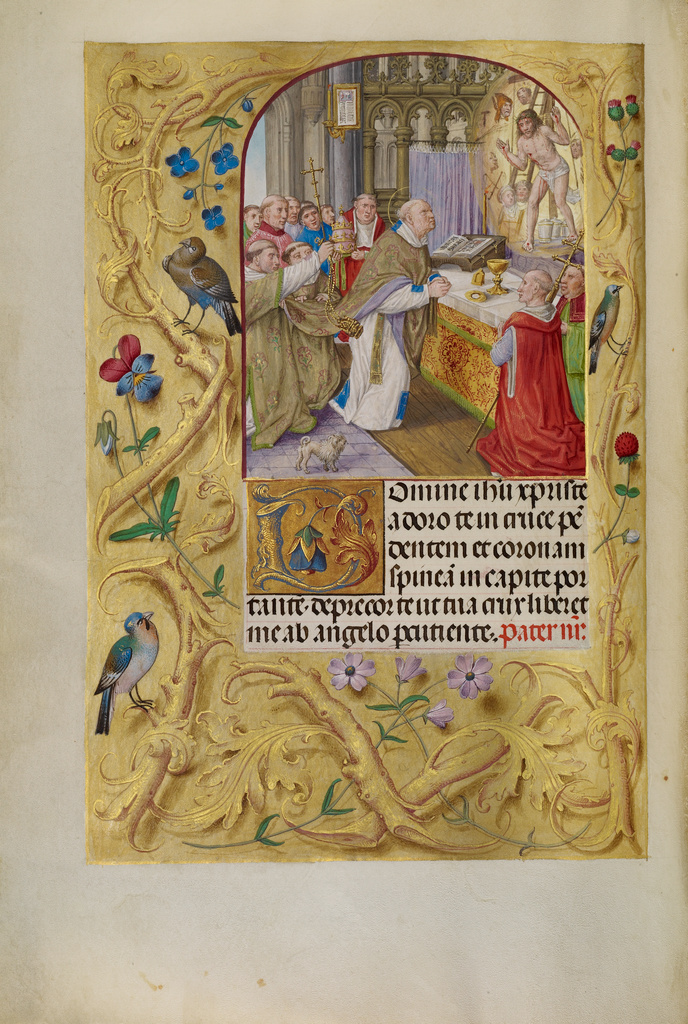 Domine ihũ xpriste
adoro te in cruce pẽ
dentem et coronam
spineã in capite por
tante. deprecor te ut tua crux liberet
me ab angelo pcutiente. Pater nr̃: